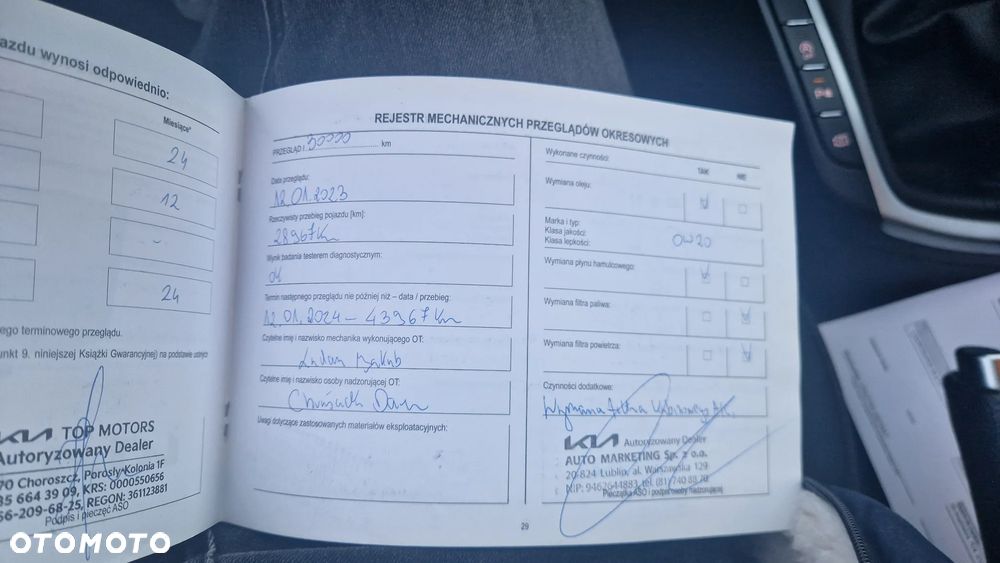 azdu wynosi odpowiednio:
Miesiące*
24
12
-
24
ego terminowego przeglądu.
unkt 9. niniejszej Książki Gwarancyjnej) na podstawie ustnych
KIA TOP MOTORS
Autoryzowany Dealer
70 Choroszcz, Porosły-Kolonia 1F
85 664 39 09, KRS: 0000550656
66-209-68-25, REGON: 361123881
Podpis i pieczęć ASO
REJESTR MECHANICZNYCH PRZEGLĄDÓW OKRESOWYCH
PRZEGLĄD I 30000 km
Data przeglądu:
12.01.2023
Rzeczywisty przebieg pojazdu [km]:
28967 Km
Wynik badania testerem diagnostycznym:
OK
Termin następnego przeglądu nie później niż – data / przebieg:
12.01.2024 – 43967 Km
Czytelne imię i nazwisko mechanika wykonującego OT:
Czytelne imię i nazwisko osoby nadzorującej OT:
Uwagi dotyczące zastosowanych materiałów eksploatacyjnych:
Wykonane czynności:
TAK NIE
Wymiana oleju:
Marka i typ:
Klasa jakości:
Klasa lepkości:
0W20
Wymiana płynu hamulcowego:
Wymiana filtra paliwa:
Wymiana filtra powietrza:
Czynności dodatkowe:
Wymiana filtra
KIA Autoryzowany Dealer
AUTO MARKETING Sp. z o.o.
20-824 Lublin, al. Warszawska 129
NIP: 9462644883, tel. (81) 740 88 70
Pieczątka ASO i podpis osoby nadzorującej
29
OTOMOTO